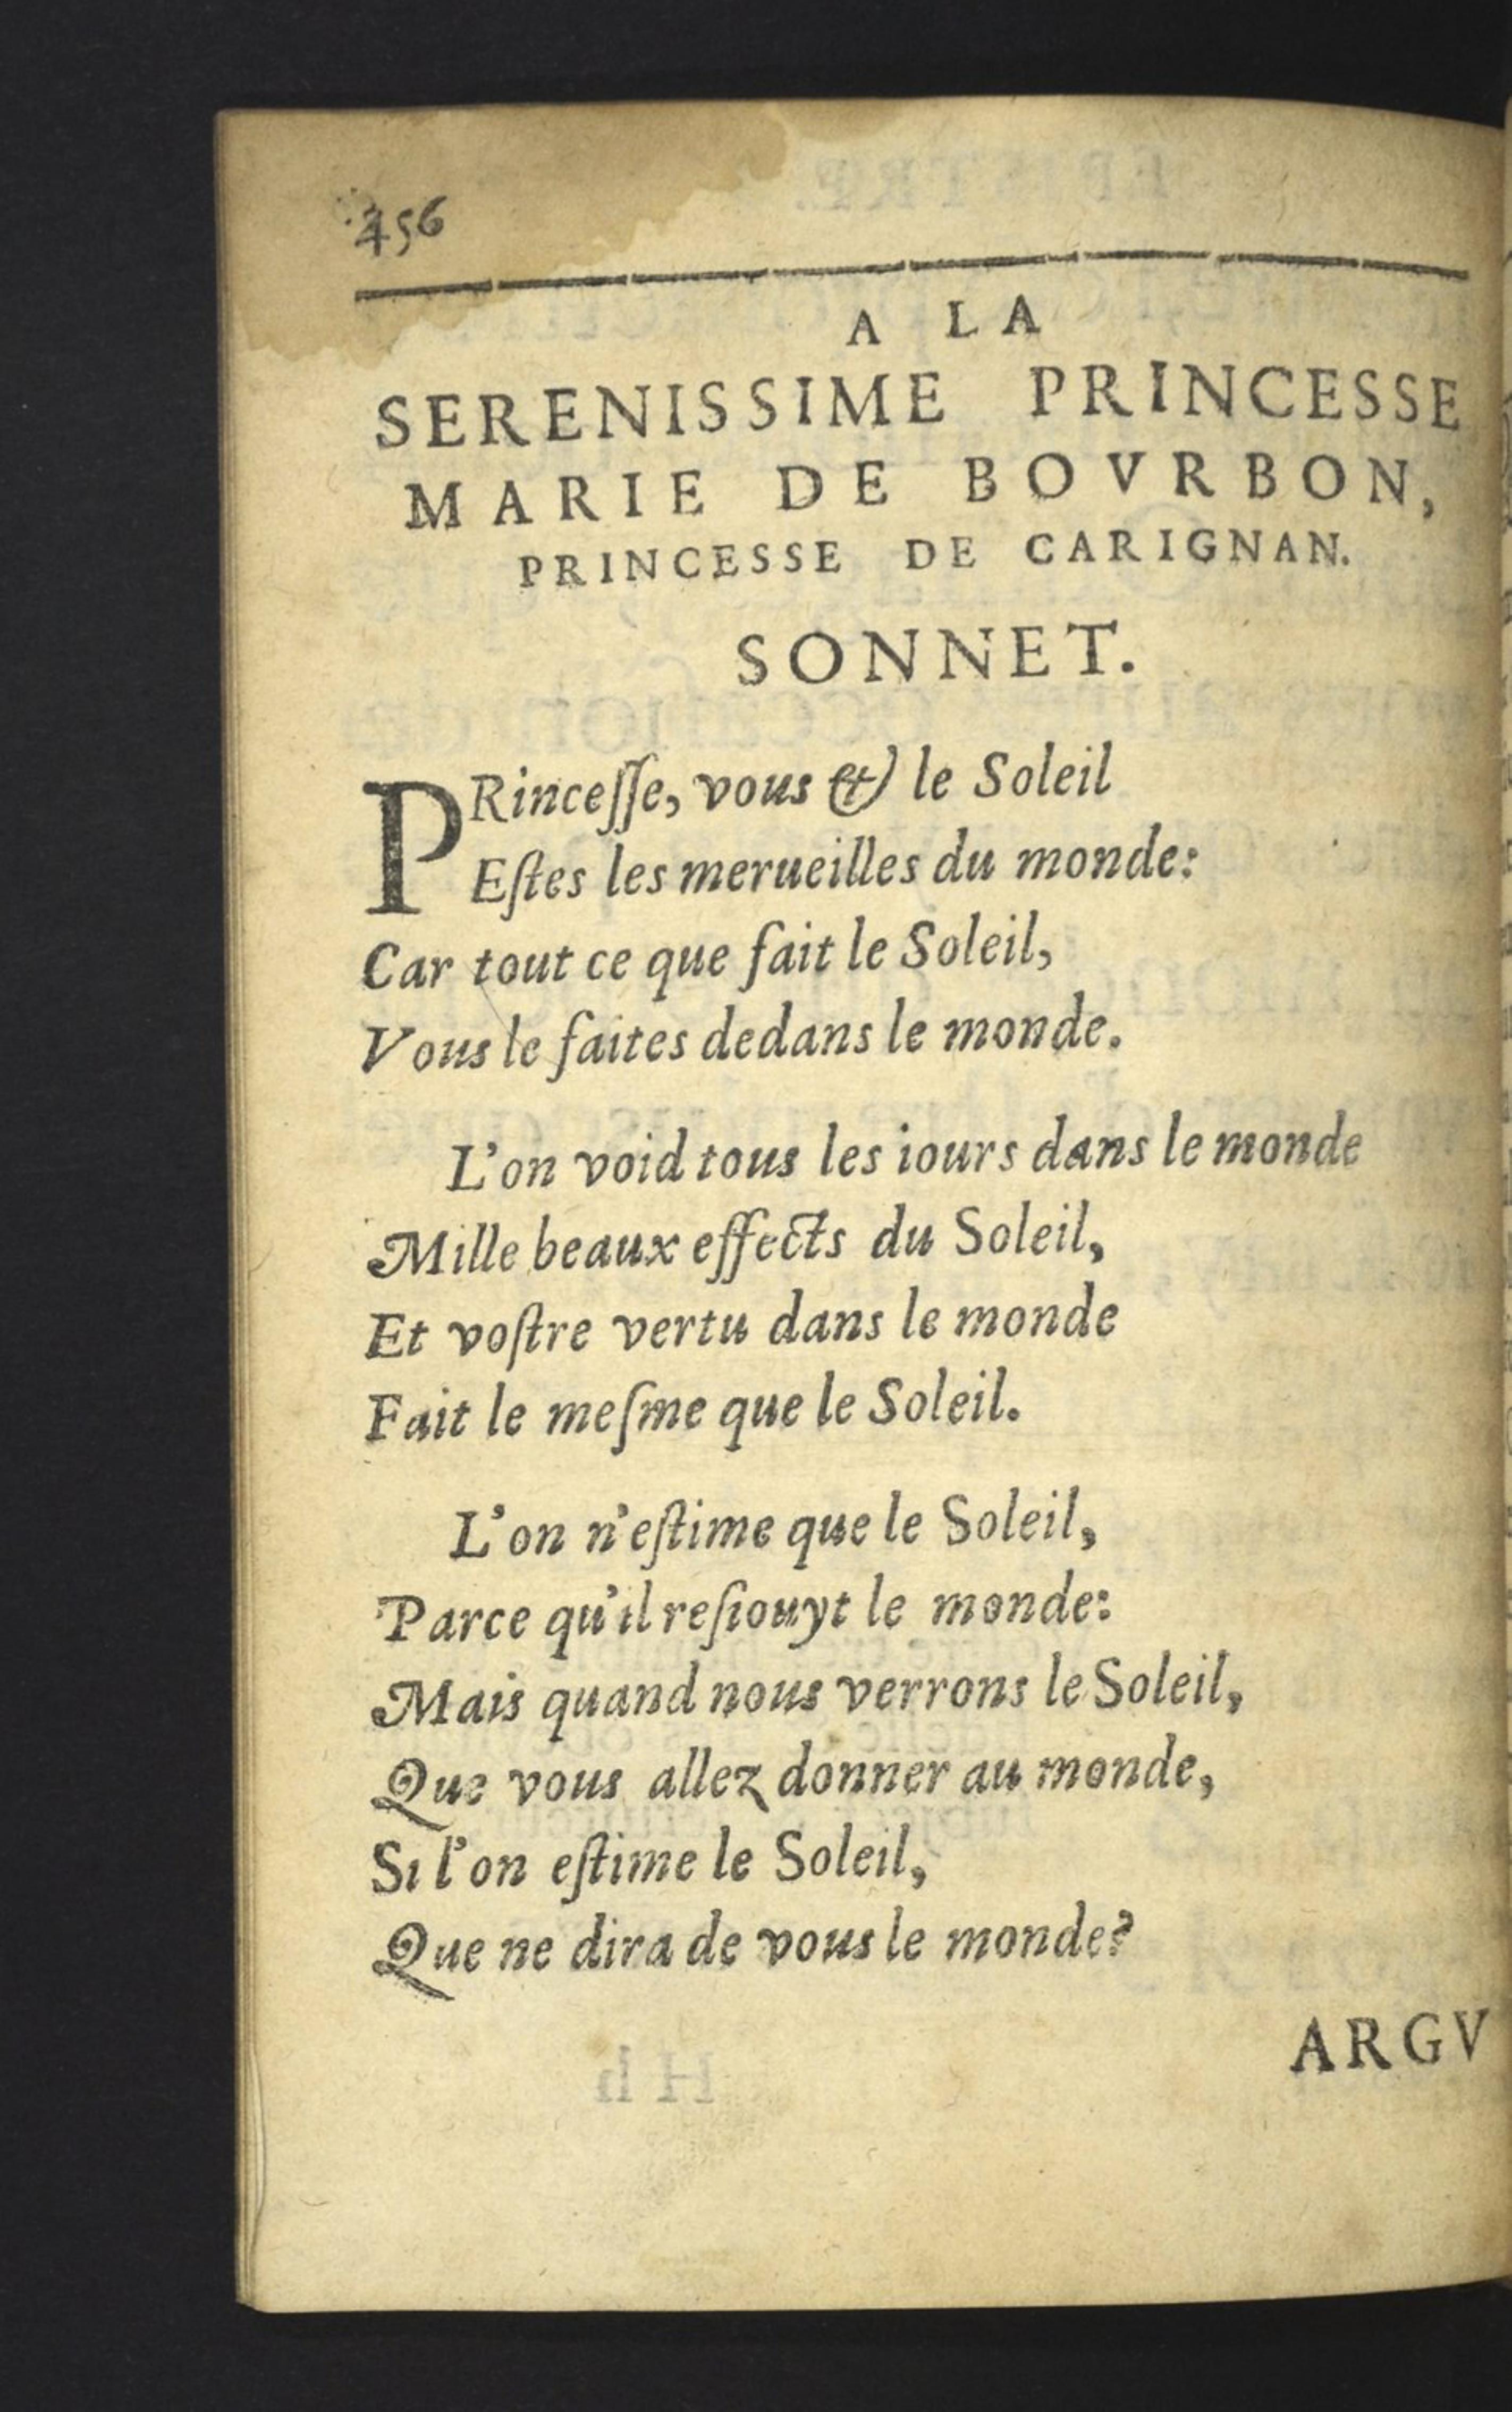 456
A LA
SERENISSIME PRINCESSE
MARIE DE BOVRBON,
PRINCESSE DE CARIGNAN.
SONNET.
PRinceſſe, vous & le Soleil
Eſtes les merueilles du monde:
Car tout ce que fait le Soleil,
Vous le faites dedans le monde.
L'on void tous les iours dans le monde
Mille beaux effects du Soleil,
Et voſtre vertu dans le monde
Fait le meſme que le Soleil.
L'on n'eſtime que le Soleil,
Parce qu'il reſiouyt le monde:
Mais quand nous verrons le Soleil,
Que vous allez donner au monde,
Si l'on eſtime le Soleil,
Que ne dira de vous le monde?
ARGV